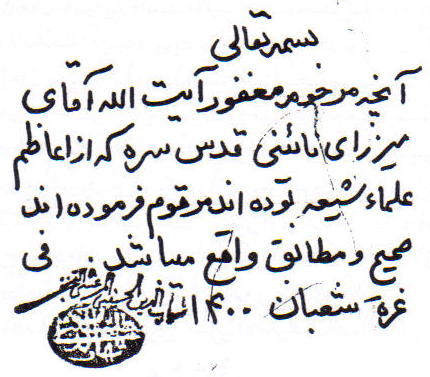 بسمه تعالی
آنچه مرحوم مغفور آیت الله آقای
میرزای نائنی قدس سره که از اعاظم
علماء شیعه بوده اند مرقوم فرموده اند
صحیح و مطابق واقع میباشد. فی
غره شعبان ۱۴۰۰